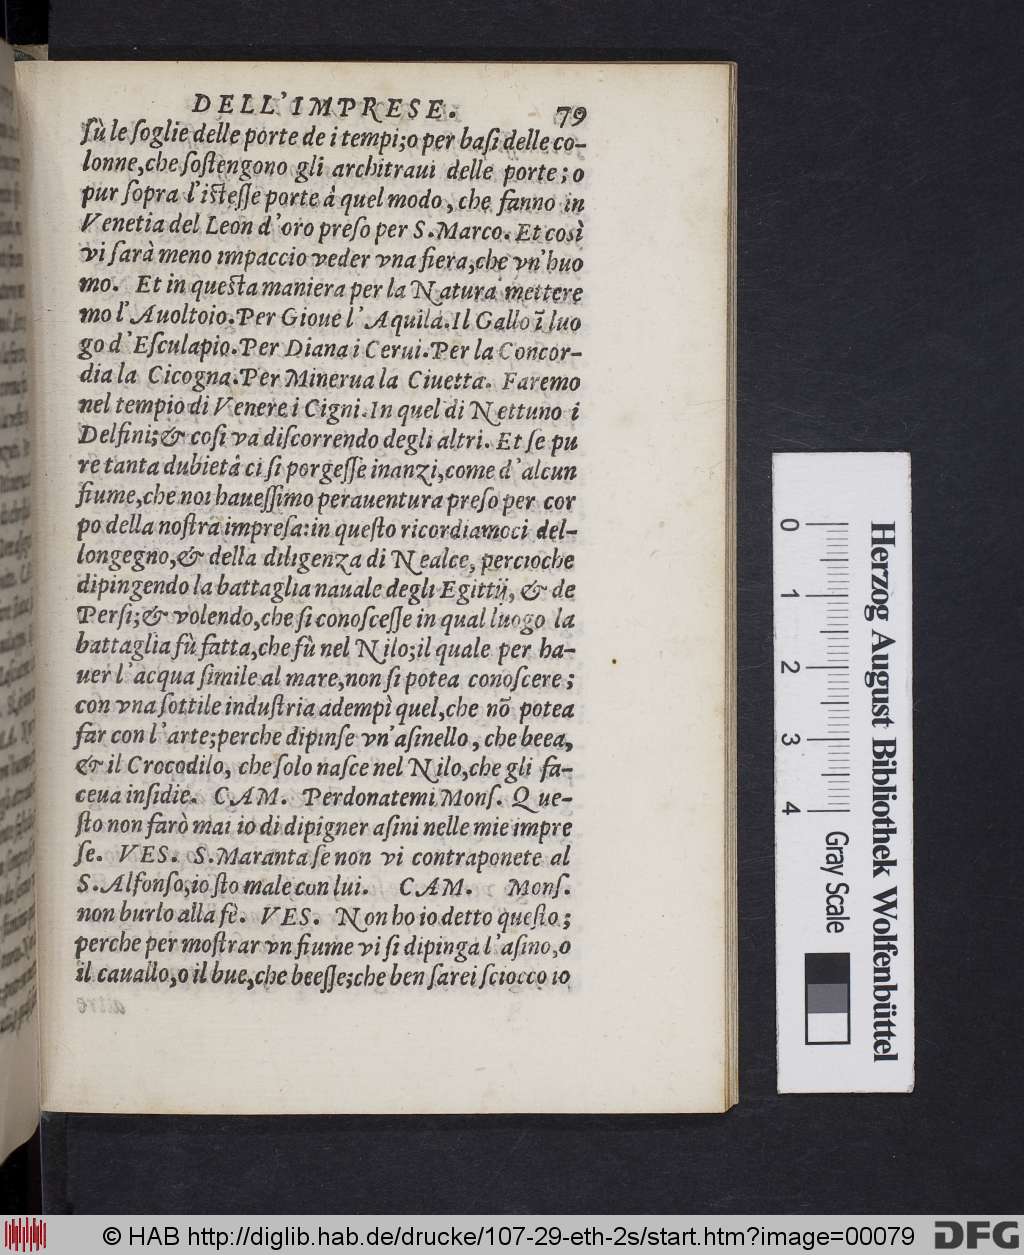 DELL'IMPRESE. 79
ſù le ſoglie delle porte de i tempi;o per baſi delle co-
lonne,che ſoſtengono gli architraui delle porte; o
pur ſopra l'iſteſſe porte à quel modo, che fanno in
Venetia del Leon d'oro preſo per S.Marco. Et così
vi ſarà meno impaccio veder vna fiera,che vn'huo
mo. Et in queſta maniera per la Natura mettere
mo l'Auoltoio.Per Gioue l'Aquila.Il Gallo ĩ luo
go d'Eſculapio.Per Diana i Cerui.Per la Concor-
dia la Cicogna.Per Minerua la Ciuetta. Faremo
nel tempio di Venere i Cigni.In quel di Nettuno i
Delfini;& coſi va diſcorrendo degli altri. Et ſe pu
re tanta dubietà ci ſi porgeſſe inanzi,come d'alcun
fiume,che noi haueſſimo perauentura preſo per cor
po della noſtra impreſa:in queſto ricordiamoci del-
longegno,& della diligenza di Nealce, percioche
dipingendo la battaglia nauale degli Egittij, & de
Perſi;& volendo,che ſi conoſceſſe in qual luogo la
battaglia fù fatta,che fù nel Nilo;il quale per ha-
uer l'acqua ſimile al mare,non ſi potea conoſcere;
con vna ſottile induſtria adempì quel,che nõ potea
far con l'arte;perche dipinſe vn'aſinello, che beea,
& il Crocodilo, che ſolo naſce nel Nilo,che gli fa-
ceua inſidie. CAM. Perdonatemi Monſ. Que-
ſto non farò mai io di dipigner aſini nelle mie impre
ſe. VES. S.Maranta ſe non vi contraponete al
S.Alfonſo,io ſto male con lui. CAM. Monſ.
non burlo alla fè. VES. Non ho io detto queſto;
perche per moſtrar vn fiume vi ſi dipinga l'aſino,o
il cauallo,o il bue,che beeſſe;che ben ſarei ſciocco io
0 1 2 3 4
Herzog August Bibliothek Wolfenbüttel
Gray Scale
© HAB http://diglib.hab.de/drucke/107-29-eth-2s/start.htm?image=00079
DFG